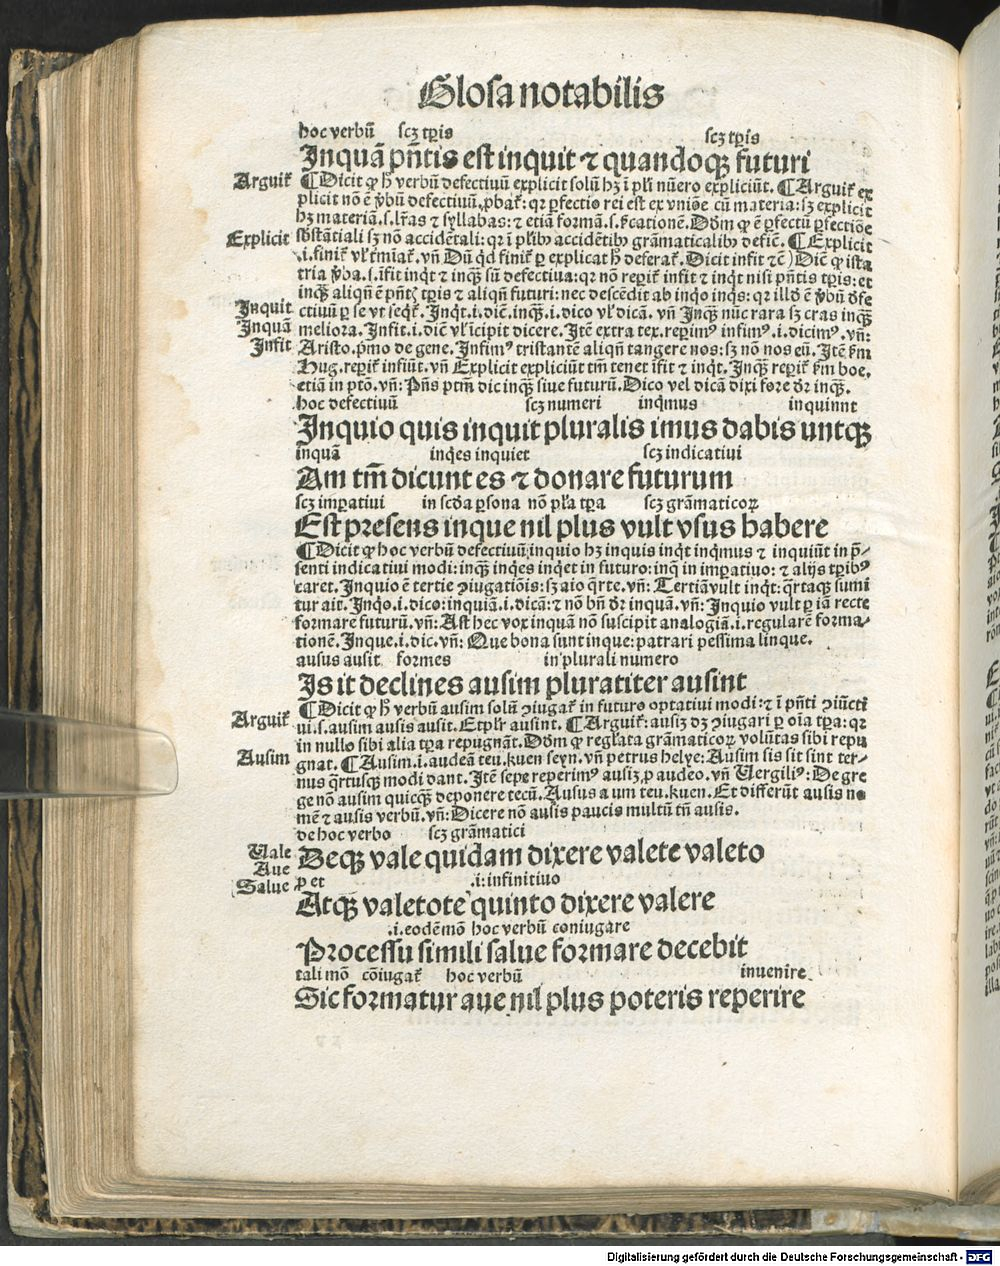 Glosa notabilis
hoc verbū scꝫ tꝑis scꝫ tꝑis
Inquā pn̄tis est inquit ⁊ quandoqꝫ futuri
Arguit᷑ ¶Dicit ꝙ h̄ verbū defectiuū explicit solū hꝫ ī pl̄i nūero expliciūt. ¶Arguit᷑ ex
plicit nō ē v̄bū defectiuū.ꝓbat᷑: qꝛ ꝑfectio rei est ex vniōe cū materia: sꝫ explicit
hꝫ materiā.s.lr̄as ⁊ syllabas: ⁊ etiā formā.s.
Explicit sb̄stātiali sꝫ nō accidētali: qꝛ ī accidētibꝰ grāmaticalibꝰ defic̄. ¶Explicit
.i.finit᷑ vn̄ Dicit infit ⁊c̄
nisi pn̄tis tꝑis: et
inqꝫ aliqn̄ ē tꝑis ⁊ aliqn̄ futuri: nec descēdit ab
Inquit ctiuū ꝑ se vt .i.dico vl̓ dicā. vn̄ Inqꝫ nūc rara sꝫ cras inqꝫ
Inquā meliora. Infit.i.dic̄ vl̓ īcipit dicere. Itē extra tex.reꝑimꝰ infimꝰ.i.dicimꝰ.vn̄:
Infit Aristo.pͥmo de gene. Infimꝰ tristantē aliqn̄ tangere nos: sꝫ nō nos eū. Itē
Hug. vn̄ Explicit expliciūt tm̄ tenet īfit ⁊ inqͥt. boe.
etiā in ptō.vn̄: siue futurū. Dico vel dicā dixi fore dr̄ inqꝫ.
hoc defectiuū scꝫ numeri inqͥmus inquinnt
Inquio quis inquit pluralis imus dabis untqꝫ
inquā inqͥes inquiet scꝫ indicatiui
Am tm̄ dicunt es ⁊ donare futurum
scꝫ imꝑatiui in scd̄a ꝑsona nō pl̄a tꝑa scꝫ grāmaticoꝝ
Est presens inque nil plus vult vsus habere
¶Dicit ꝙ hoc verbū defectiuū inquio hꝫ inquis inqͥt inqͥmus ⁊ inquiūt in p̄-
senti indicatiui modi: inqꝫ inqͥes inqͥet in futuro: inqͥ in imꝑatiuo: ⁊ alijs tꝑibꝰ
caret. Inquio ē tertie ꝯiugatiōis: sꝫ aio qͣrte. vn̄: Tertiā vult inqͥt: qͣrtaqꝫ sumi
tur ait. Inqͥo.i.dico: inquiā.i.dicā: ⁊ nō bn̄ dr̄ inquā. vn̄: Inquio vult ꝑ iā recte
formare futurū. vn̄: Ast hec vox inquā nō suscipit analogiā.i.regularē forma-
tionē. Inque.i.dic. vn̄: Que bona sunt inque: patrari pessima linque.
ausus ausit formes in plurali numero
Is it declines ausim pluraliter ausint
Arguit᷑ ¶Dicit ꝙ h̄ verbū ausim solū ꝯiugat᷑ in futuro optatiui modi: ⁊ ī pn̄ti ꝯiūcti
ui.s.ausim ausis ausit. Et pl̓r ausint. ¶Arguit᷑: ausiꝫ dꝫ ꝯiugari ꝑ oīa tꝑa: qꝛ
in nullo sibi alia tꝑa repugnāt. Dd̄m ꝙ regl̓ata grāmaticoꝝ volūtas sibi repu
Ausim gnat. ¶Ausim.i.audeā teu.kuen seyn. vn̄ petrus helye: Ausim sis sit sint ter-
nus qͣrtusqꝫ modi dant. Itē sepe reperimꝰ ausiꝫ ꝓ audeo. vn̄ Uergiliꝰ: De gre
ge nō ausim quicqꝫ deponere tecū. Ausus a um teu.kuen. Et differūt ausis no
mē ⁊ ausis verbū. vn̄: Dicere nō ausis paucis multū tn̄ ausis.
de hoc verbo scꝫ grāmatici
Uale Deqꝫ vale quidam dixere valete valeto
Aue
Salue ꝓ et .i: infinitiuo
Atqꝫ valetote quinto dixere valere
.i.eodē mō hoc verbū coniugare
Processu simili salue formare decebit
tali mō cōiugat᷑ hoc verbū inuenire
Sic formatur aue nil plus poteris reperire
Digitalisierung gefördert durch die Deutsche Forschungsgemeinschaft - DFG